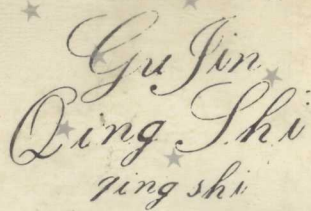 Gu Jin
Qing Shi
qing shi